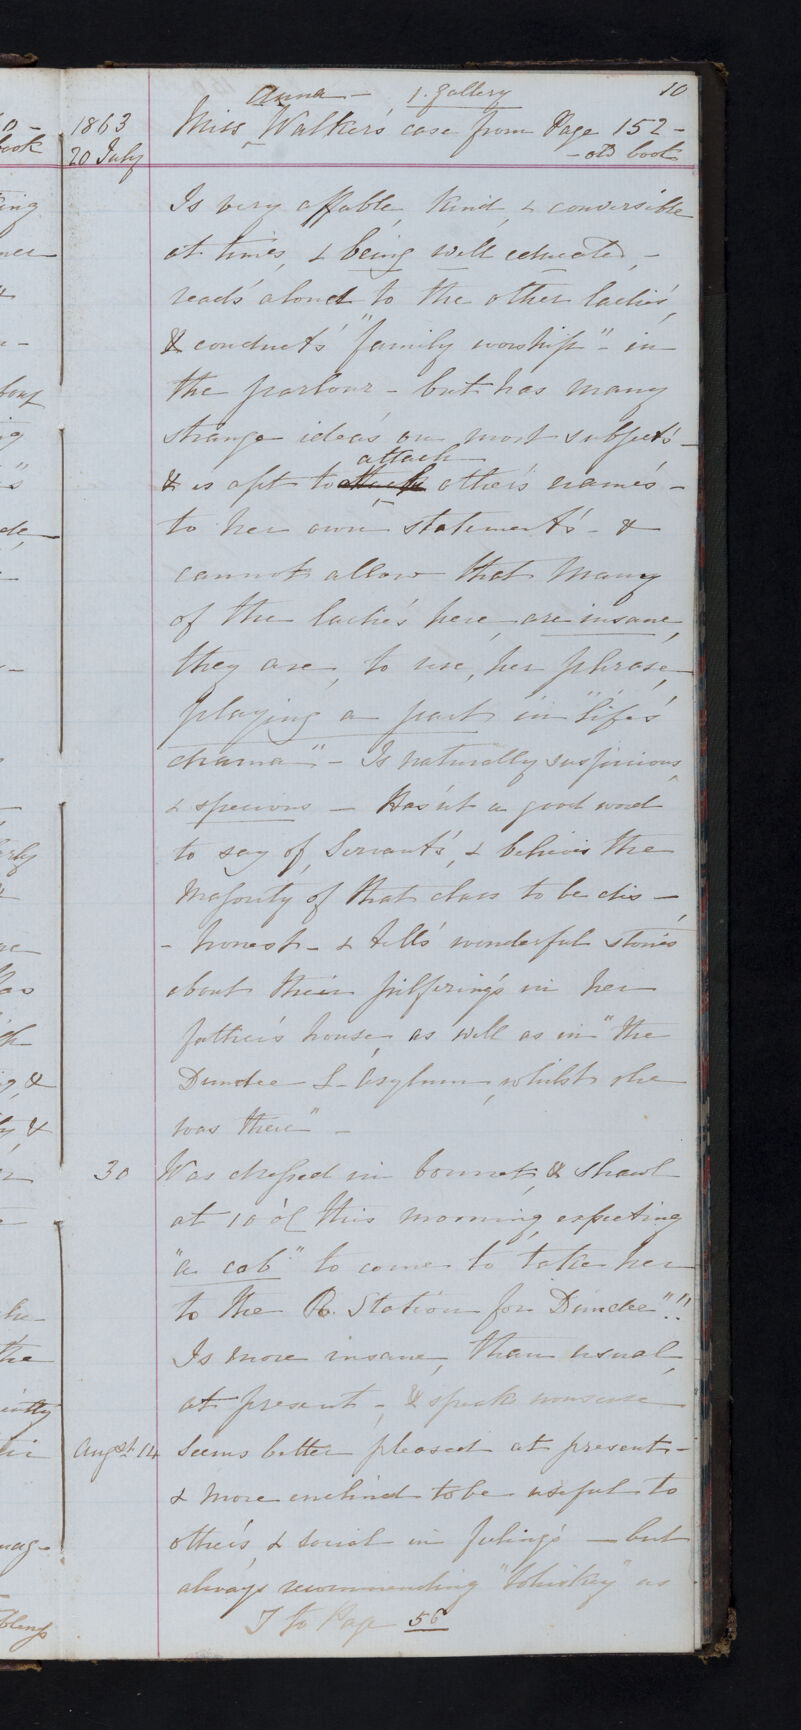 10
Anna - 1. Gallery
1863 Miss Walker's case from Page 152 -
20 July - old book
Is very affable, kind, & conversible
at times, & being well educated, -
read's aloud to the other ladie's,
& conduct's "family worship" - in
the parlour - but has many
strange idea's on most subject's -
attach
& is apt to other's name's -
to her own statement's - &
cannot allow that many
of the ladie's here, are insane,
they are, to use, her phrase,
playing a part in "life's
drama" - Is naturally suspicious,
& specious - Has'nt a good word
to say of, Servant's, & believes the
Majority of that class to be dis -
- honest - & tell's wonderful storie's
about their pilfering's in her
father's house, as well as in "the
Dundee L. Asylum, whilst she
was there" -
30 Was dressed in bonnet, & shawl
at 10 o'C this morning, expecting
"a cab" to come to take her
to the R. Station for Dundee"!!
Is more insane, than usual,
at present -, & speaks nonsense
Augst. 14 Seems better pleased at present -
& more enclined to be useful to
other's, & social in feeling's - but
always recommending "Whiskey" as
T to Page 56